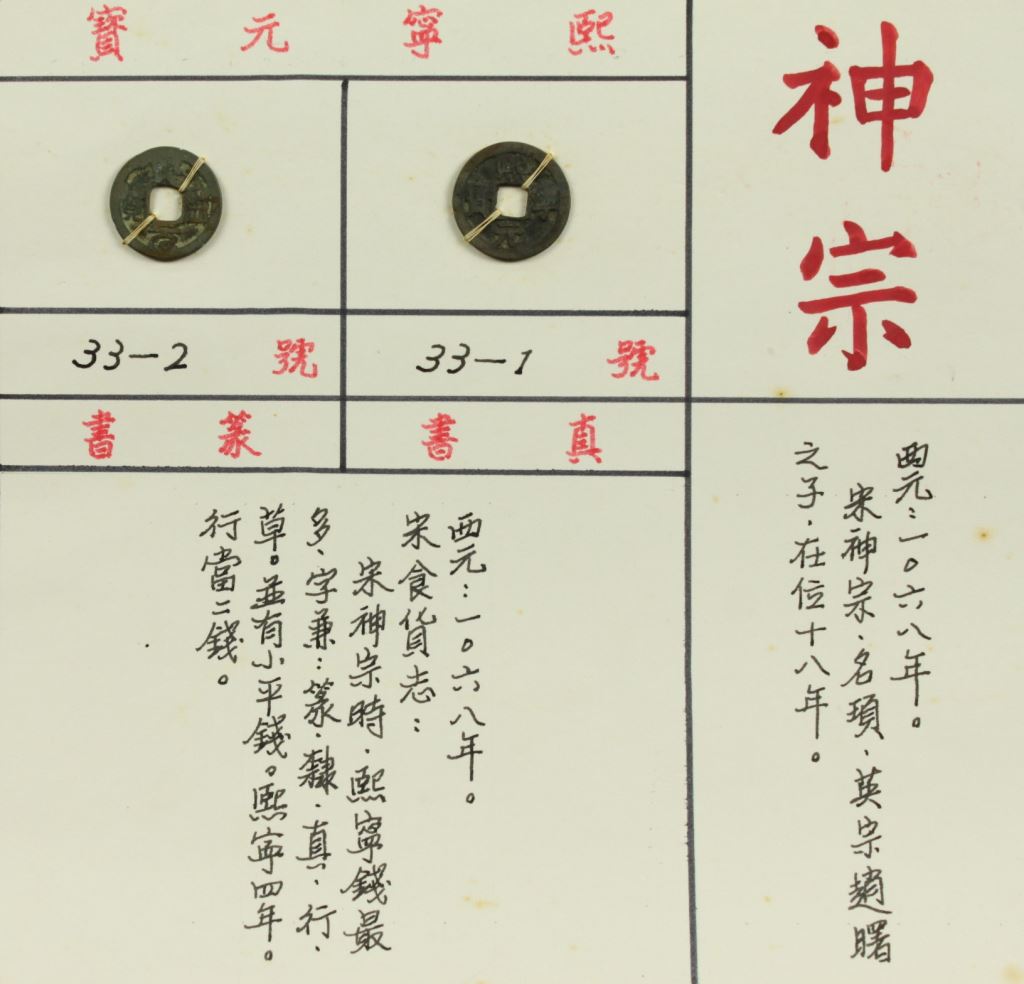 神宗
西元：一〇六八年。
宋神宗、名頊、英宗趙曙
之子，在位十八年。
熙寧元寶
號 33-1
號 33-2
真書
篆書
西元：一〇六八年。
宋食貨志：
宋神宗時，熙寧錢最
多、字兼：篆、隸、真、行、
草。並有小平錢。熙寧四年。
行當二錢。